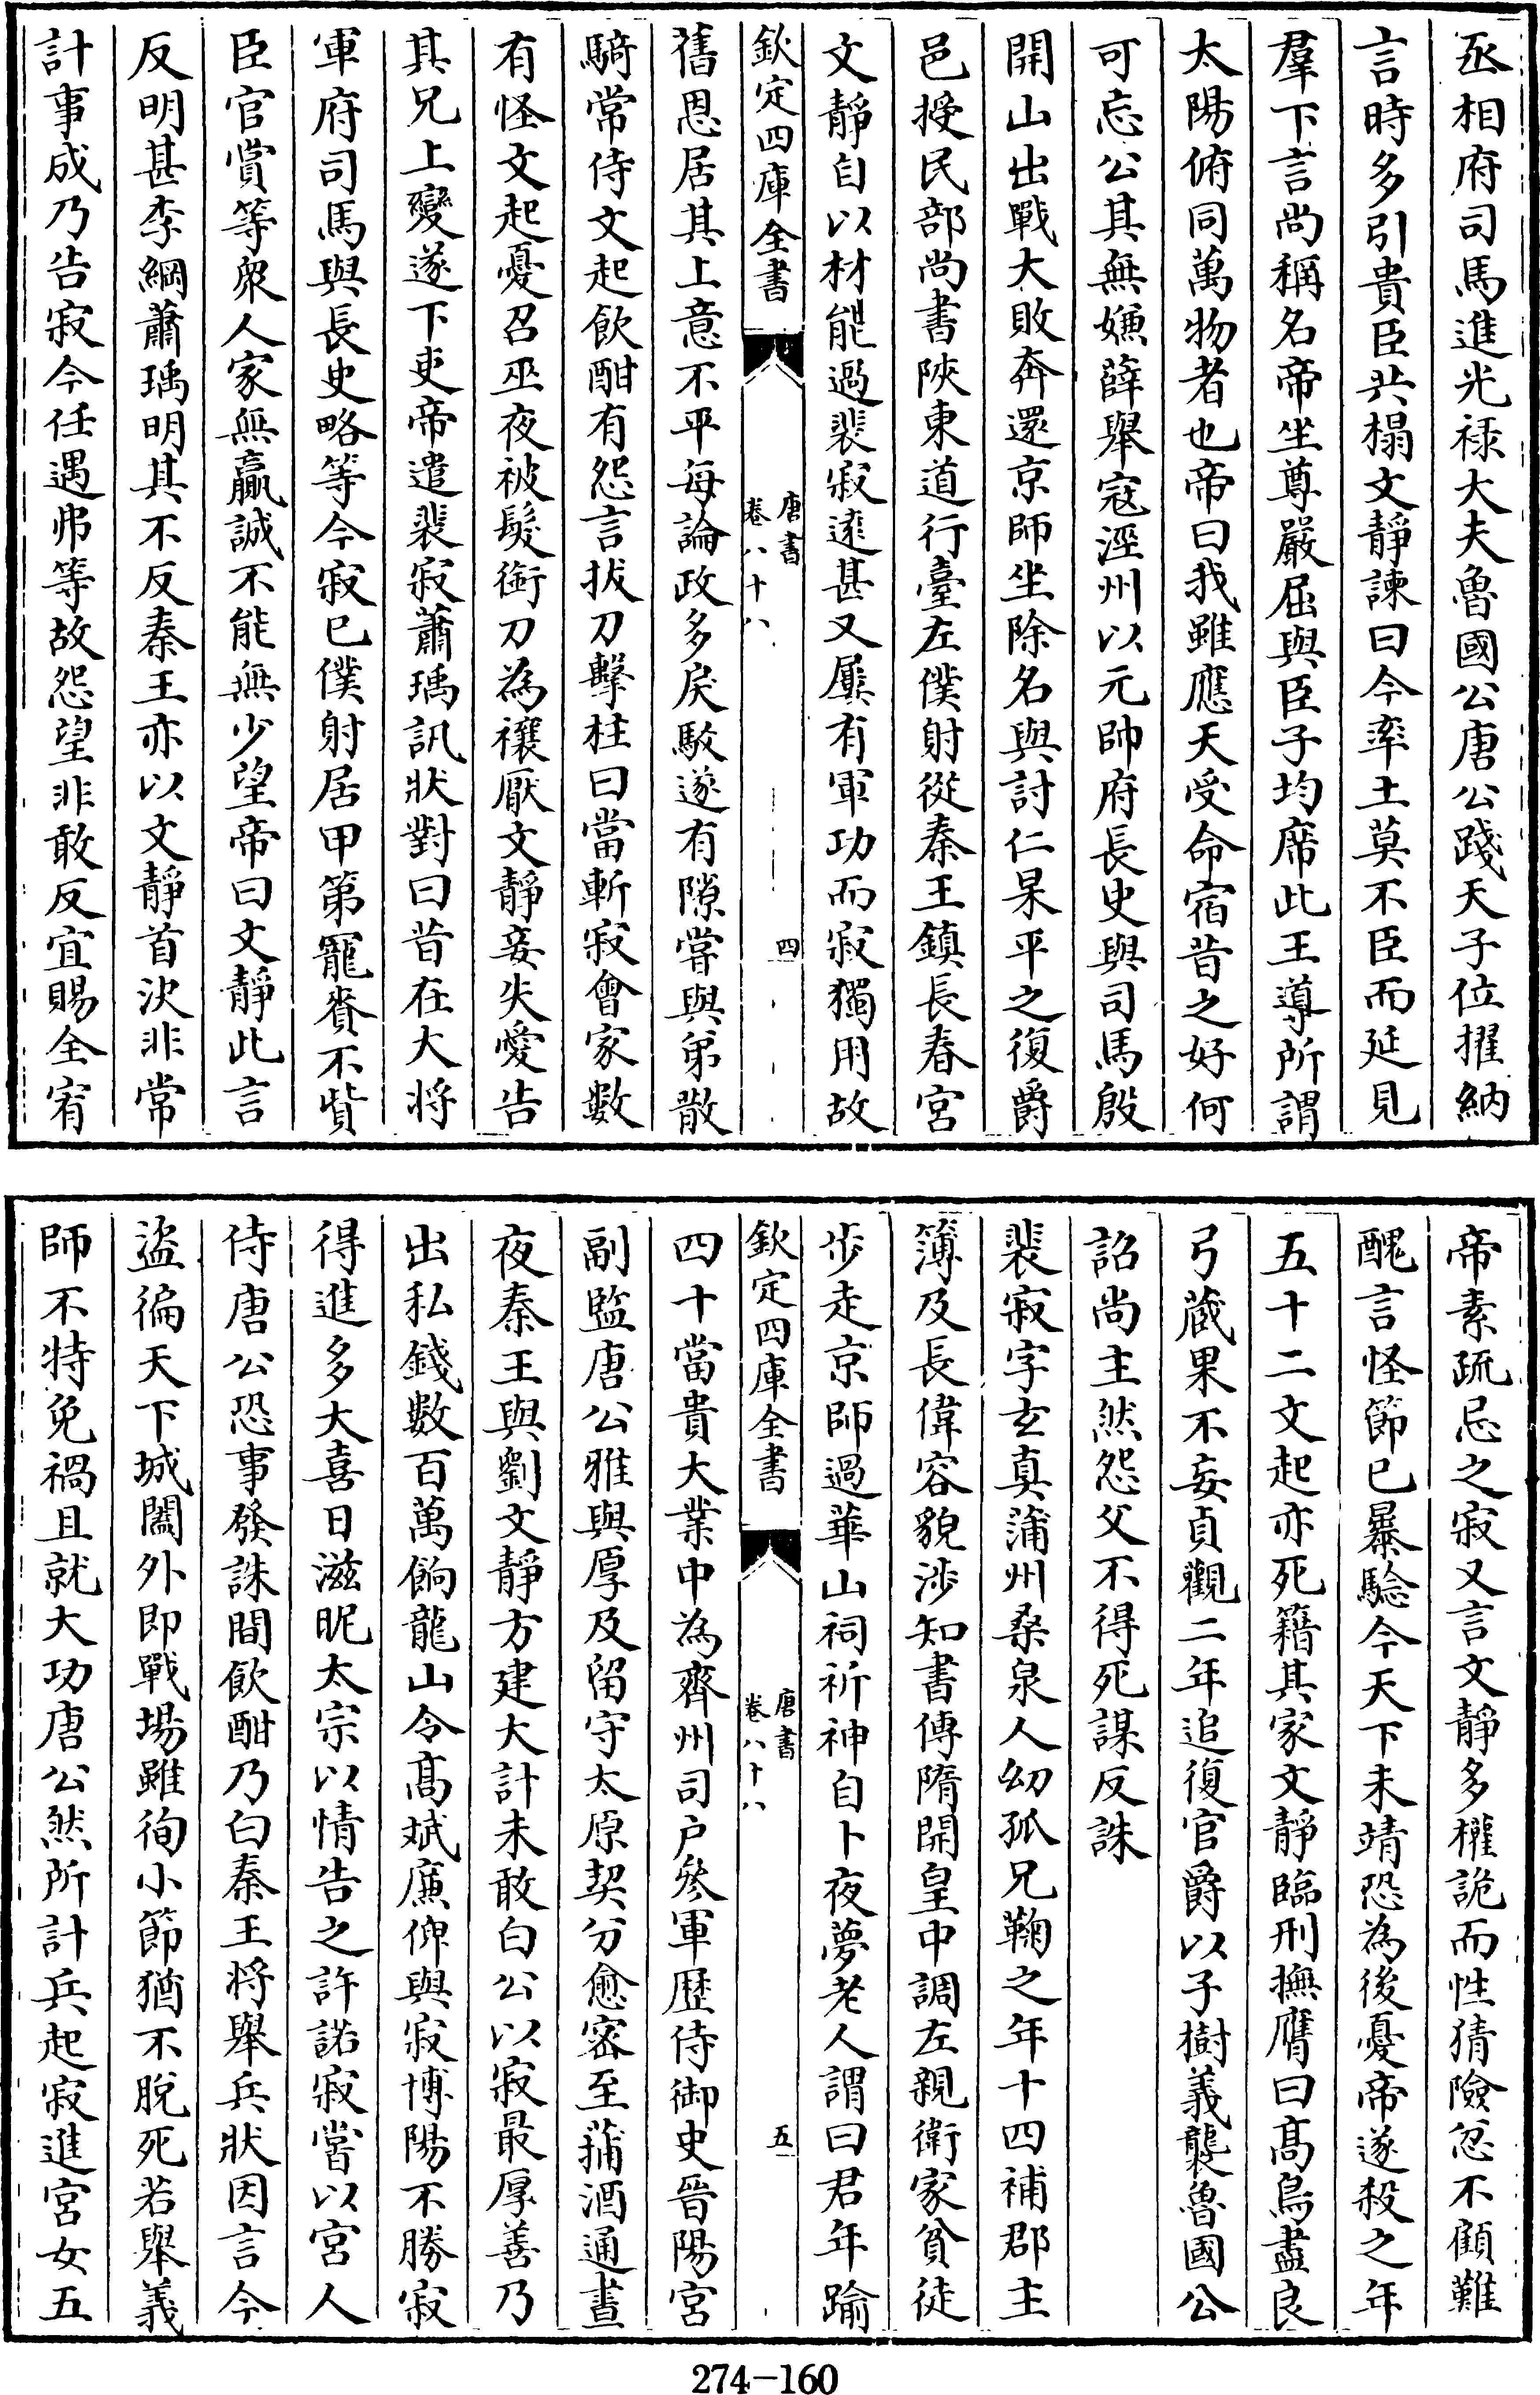 丞相府司馬進光禄大夫魯國公唐公踐天子位擢納
言時多引貴臣共榻文靜諫曰今率土莫不臣而延見
羣下言尚稱名帝坐尊嚴屈與臣子均席此王導所謂
太陽俯同萬物者也帝曰我雖應天受命宿昔之好何
可忘公其無嫌薛舉寇涇州以元帥府長史與司馬殷
開山出戰大敗奔還京師坐除名與討仁杲平之復爵
邑授民部尚書陜東道行臺左僕射從秦王鎮長春宮
文靜自以材能過裴寂逺甚又屢有軍功而寂獨用故
欽定四庫全書
唐書
卷八十八
四
舊恩居其上意不平每論政多戾駮遂有隙嘗與弟散
騎常侍文起飲酣有怨言拔刀擊柱曰當斬寂會家數
有怪文起憂召巫夜被髮銜刀為禳厭文靜妾失愛告
其兄上變遂下吏帝遣裴寂蕭瑀訊狀對曰昔在大將
軍府司馬與長史略等今寂已僕射居甲第寵賚不貲
臣官賞等衆人家無贏誠不能無少望帝曰文靜此言
反明甚李綱蕭瑀明其不反秦王亦以文靜首決非常
計事成乃告寂今任遇弗等故怨望非敢反宜賜全宥
帝素疏忌之寂又言文靜多權詭而性猜險忿不顧難
醜言怪節已暴驗今天下未靖恐為後憂帝遂殺之年
五十二文起亦死籍其家文靜臨刑撫膺曰髙鳥盡良
弓藏果不妄貞觀二年追復官爵以子樹義襲魯國公
詔尚主然怨父不得死謀反誅
裴寂字玄真蒲州桑泉人幼孤兄鞠之年十四補郡主
簿及長偉容貌涉知書傳隋開皇中調左親衛家貧徒
步走京師過華山祠祈神自卜夜夢老人謂曰君年踰
欽定四庫全書
唐書
卷八十八
五
四十當貴大業中為齊州司户參軍歴侍御史晉陽宮
副監唐公雅與厚及留守太原契分愈密至蒱酒通晝
夜秦王與劉文靜方建大計未敢白公以寂最厚善乃
出私錢數百萬餉龍山令髙斌廉俾與寂博陽不勝寂
得進多大喜日滋昵太宗以情告之許諾寂嘗以宮人
侍唐公恐事發誅間飲酣乃白秦王將舉兵狀因言今
盜徧天下城闔外即戰場雖徇小節猶不脫死若舉義
師不特免禍且就大功唐公然所計兵起寂進宮女五
274-160